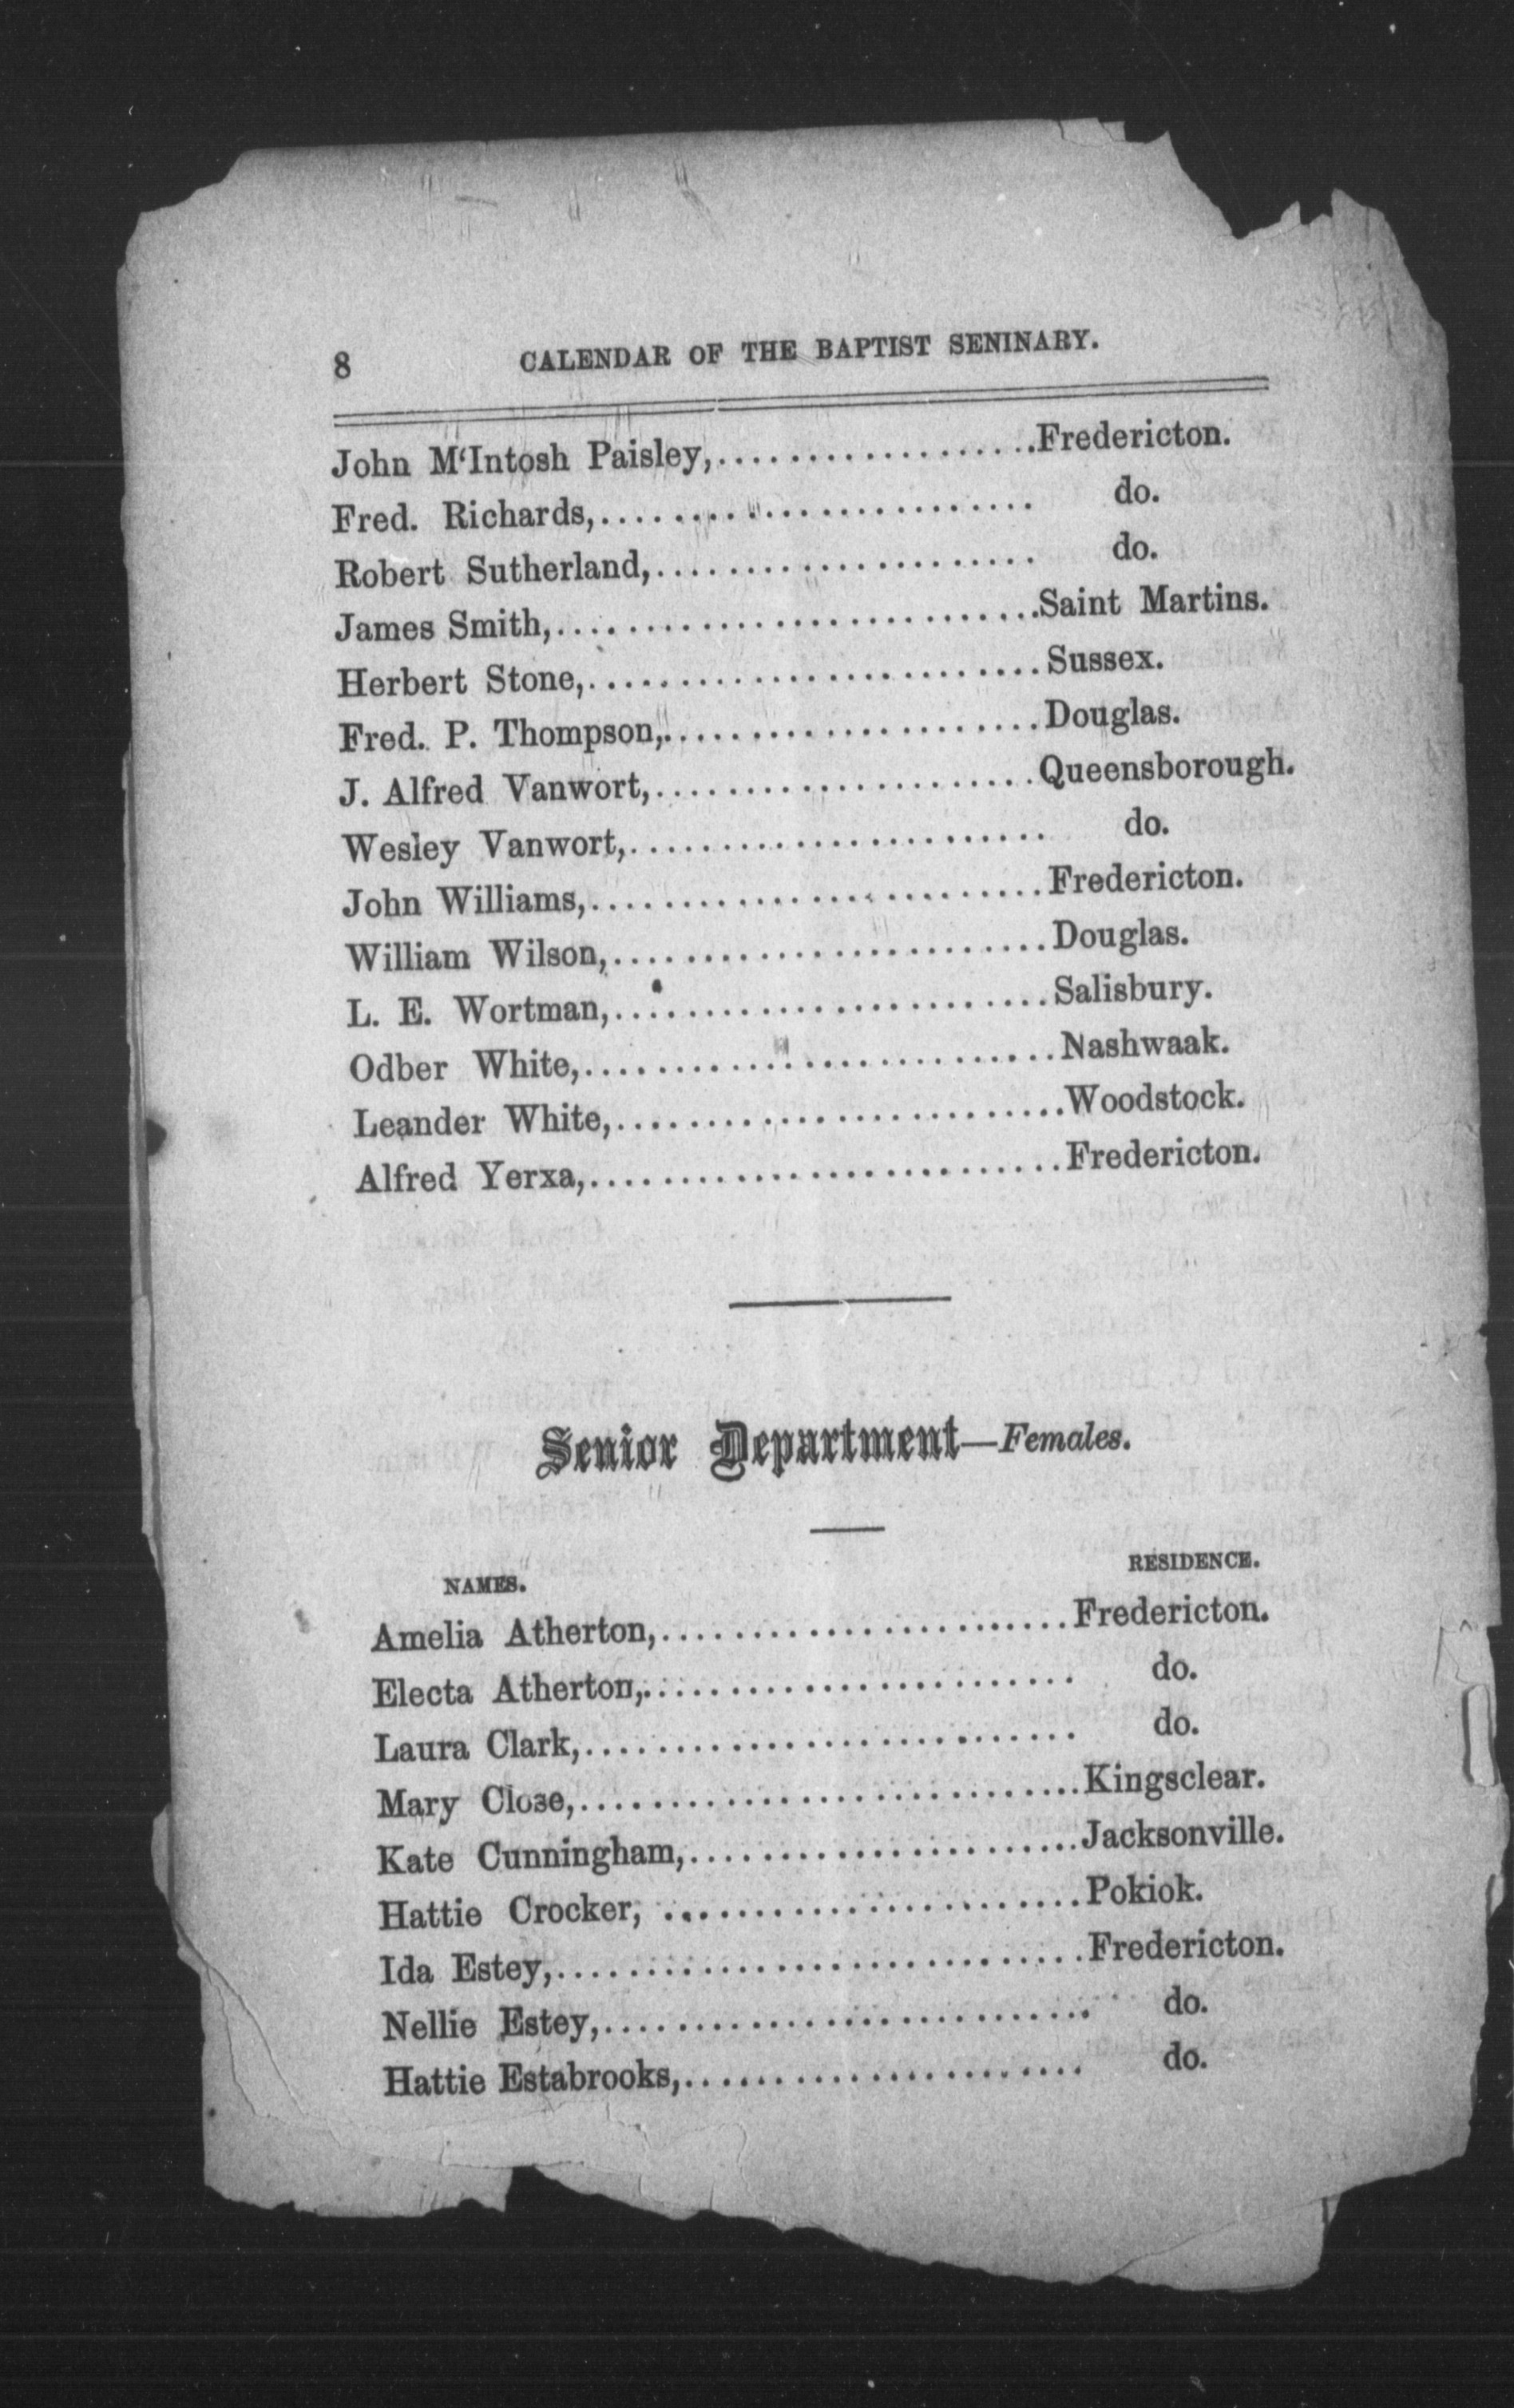 8 CALENDAR OF THE BAPTIST SENINARY.
John M‘Intosh Paisley,..................Fredericton.
Fred. Richards,........................ do.
Robert Sutherland,..................... do.
James Smith,...........................Saint Martins.
Herbert Stone,.........................Sussex.
Fred. P. Thompson,.....................Douglas.
J. Alfred Vanwort,.....................Queensborough.
Wesley Vanwort,....................... do.
John Williams,.........................Fredericton.
William Wilson,........................Douglas.
L. E. Wortman,........................Salisbury.
Odber White,..........................Nashwaak.
Leander White,.........................Woodstock.
Alfred Yerxa,..........................Fredericton.
Senior Department—Females.
NAMES. RESIDENCE.
Amelia Atherton,.......................Fredericton.
Electa Atherton,........................ do.
Laura Clark,........................... do.
Mary Close,............................Kingsclear.
Kate Cunningham,......................Jacksonville.
Hattie Crocker, .......................Pokiok.
Ida Estey,.............................Fredericton.
Nellie Estey,........................... do.
Hattie Estabrooks,...................... do.